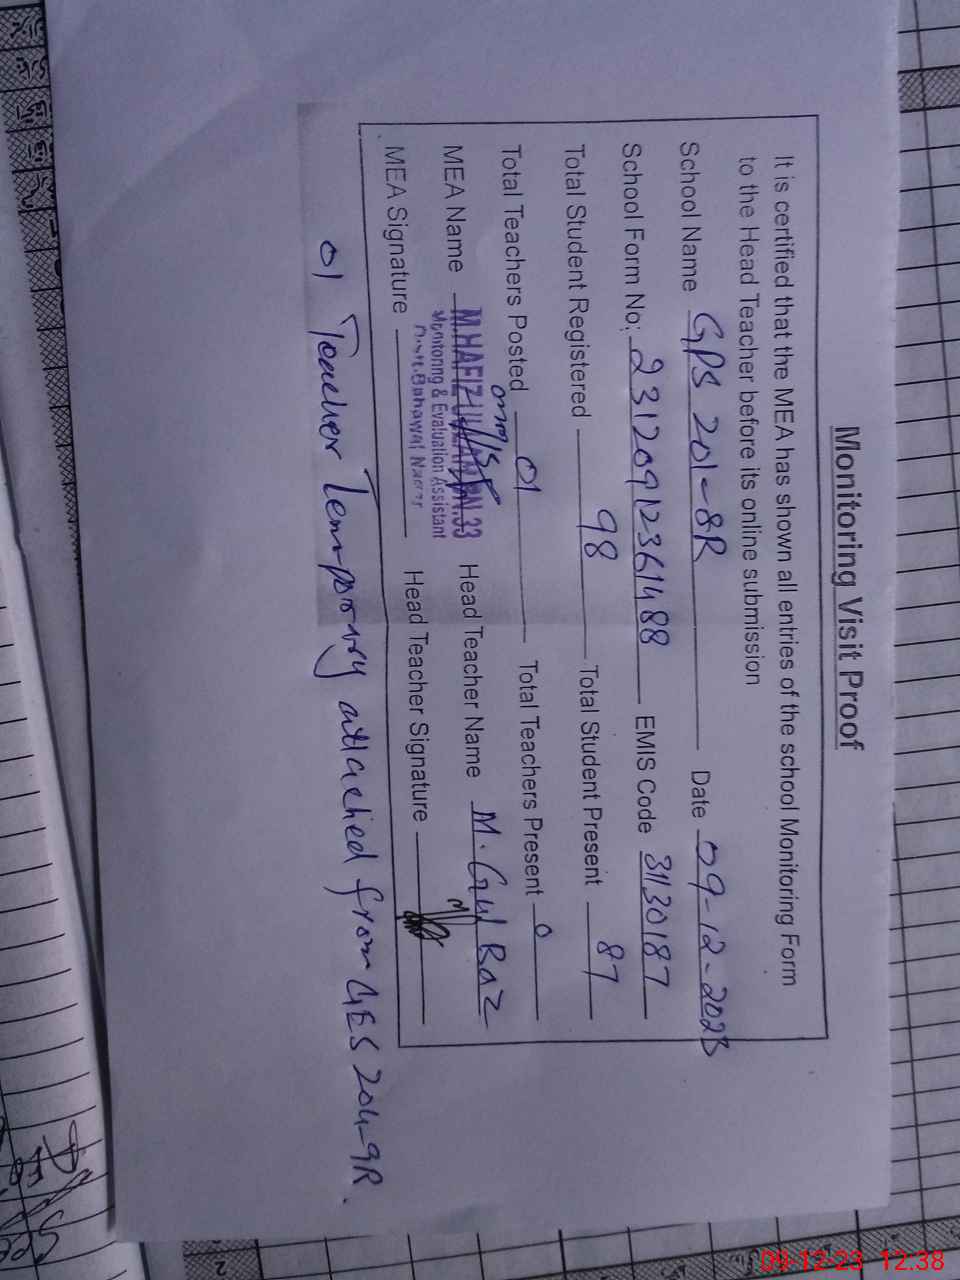 Monitoring Visit Proof
It is certified that the MEA has shown all entries of the school Monitoring Form
to the Head Teacher before its online submission
School Name GPS 201-8R Date 09-12-2023
School Form No: 23120912361488 EMIS Code 3130187
Total Student Registered 98 Total Student Present 87
Total Teachers Posted 01 Total Teachers Present 0
MEA Name M.HAFIZ Head Teacher Name M. Gul Raz
Monitoring & Evaluation Assistant
Distt. Bahawal Nagar
MEA Signature Head Teacher Signature
01 Teacher Temporary attached from GES 204-9R.
09-12-23 12:38